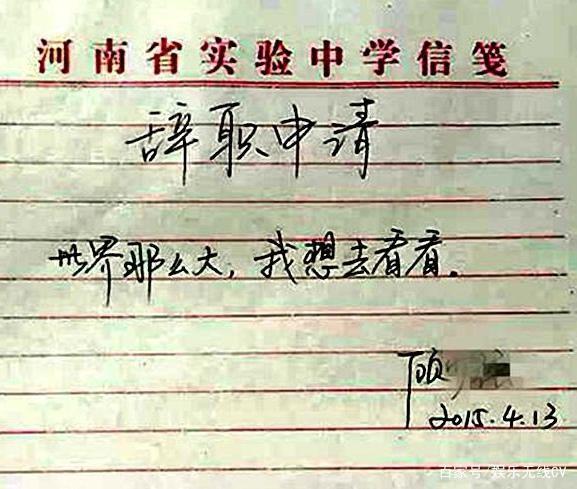 河南省实验中学信笺
辞职申请
世界那么大，我想去看看。
顾
2015.4.13
百家号/娱乐无线CV